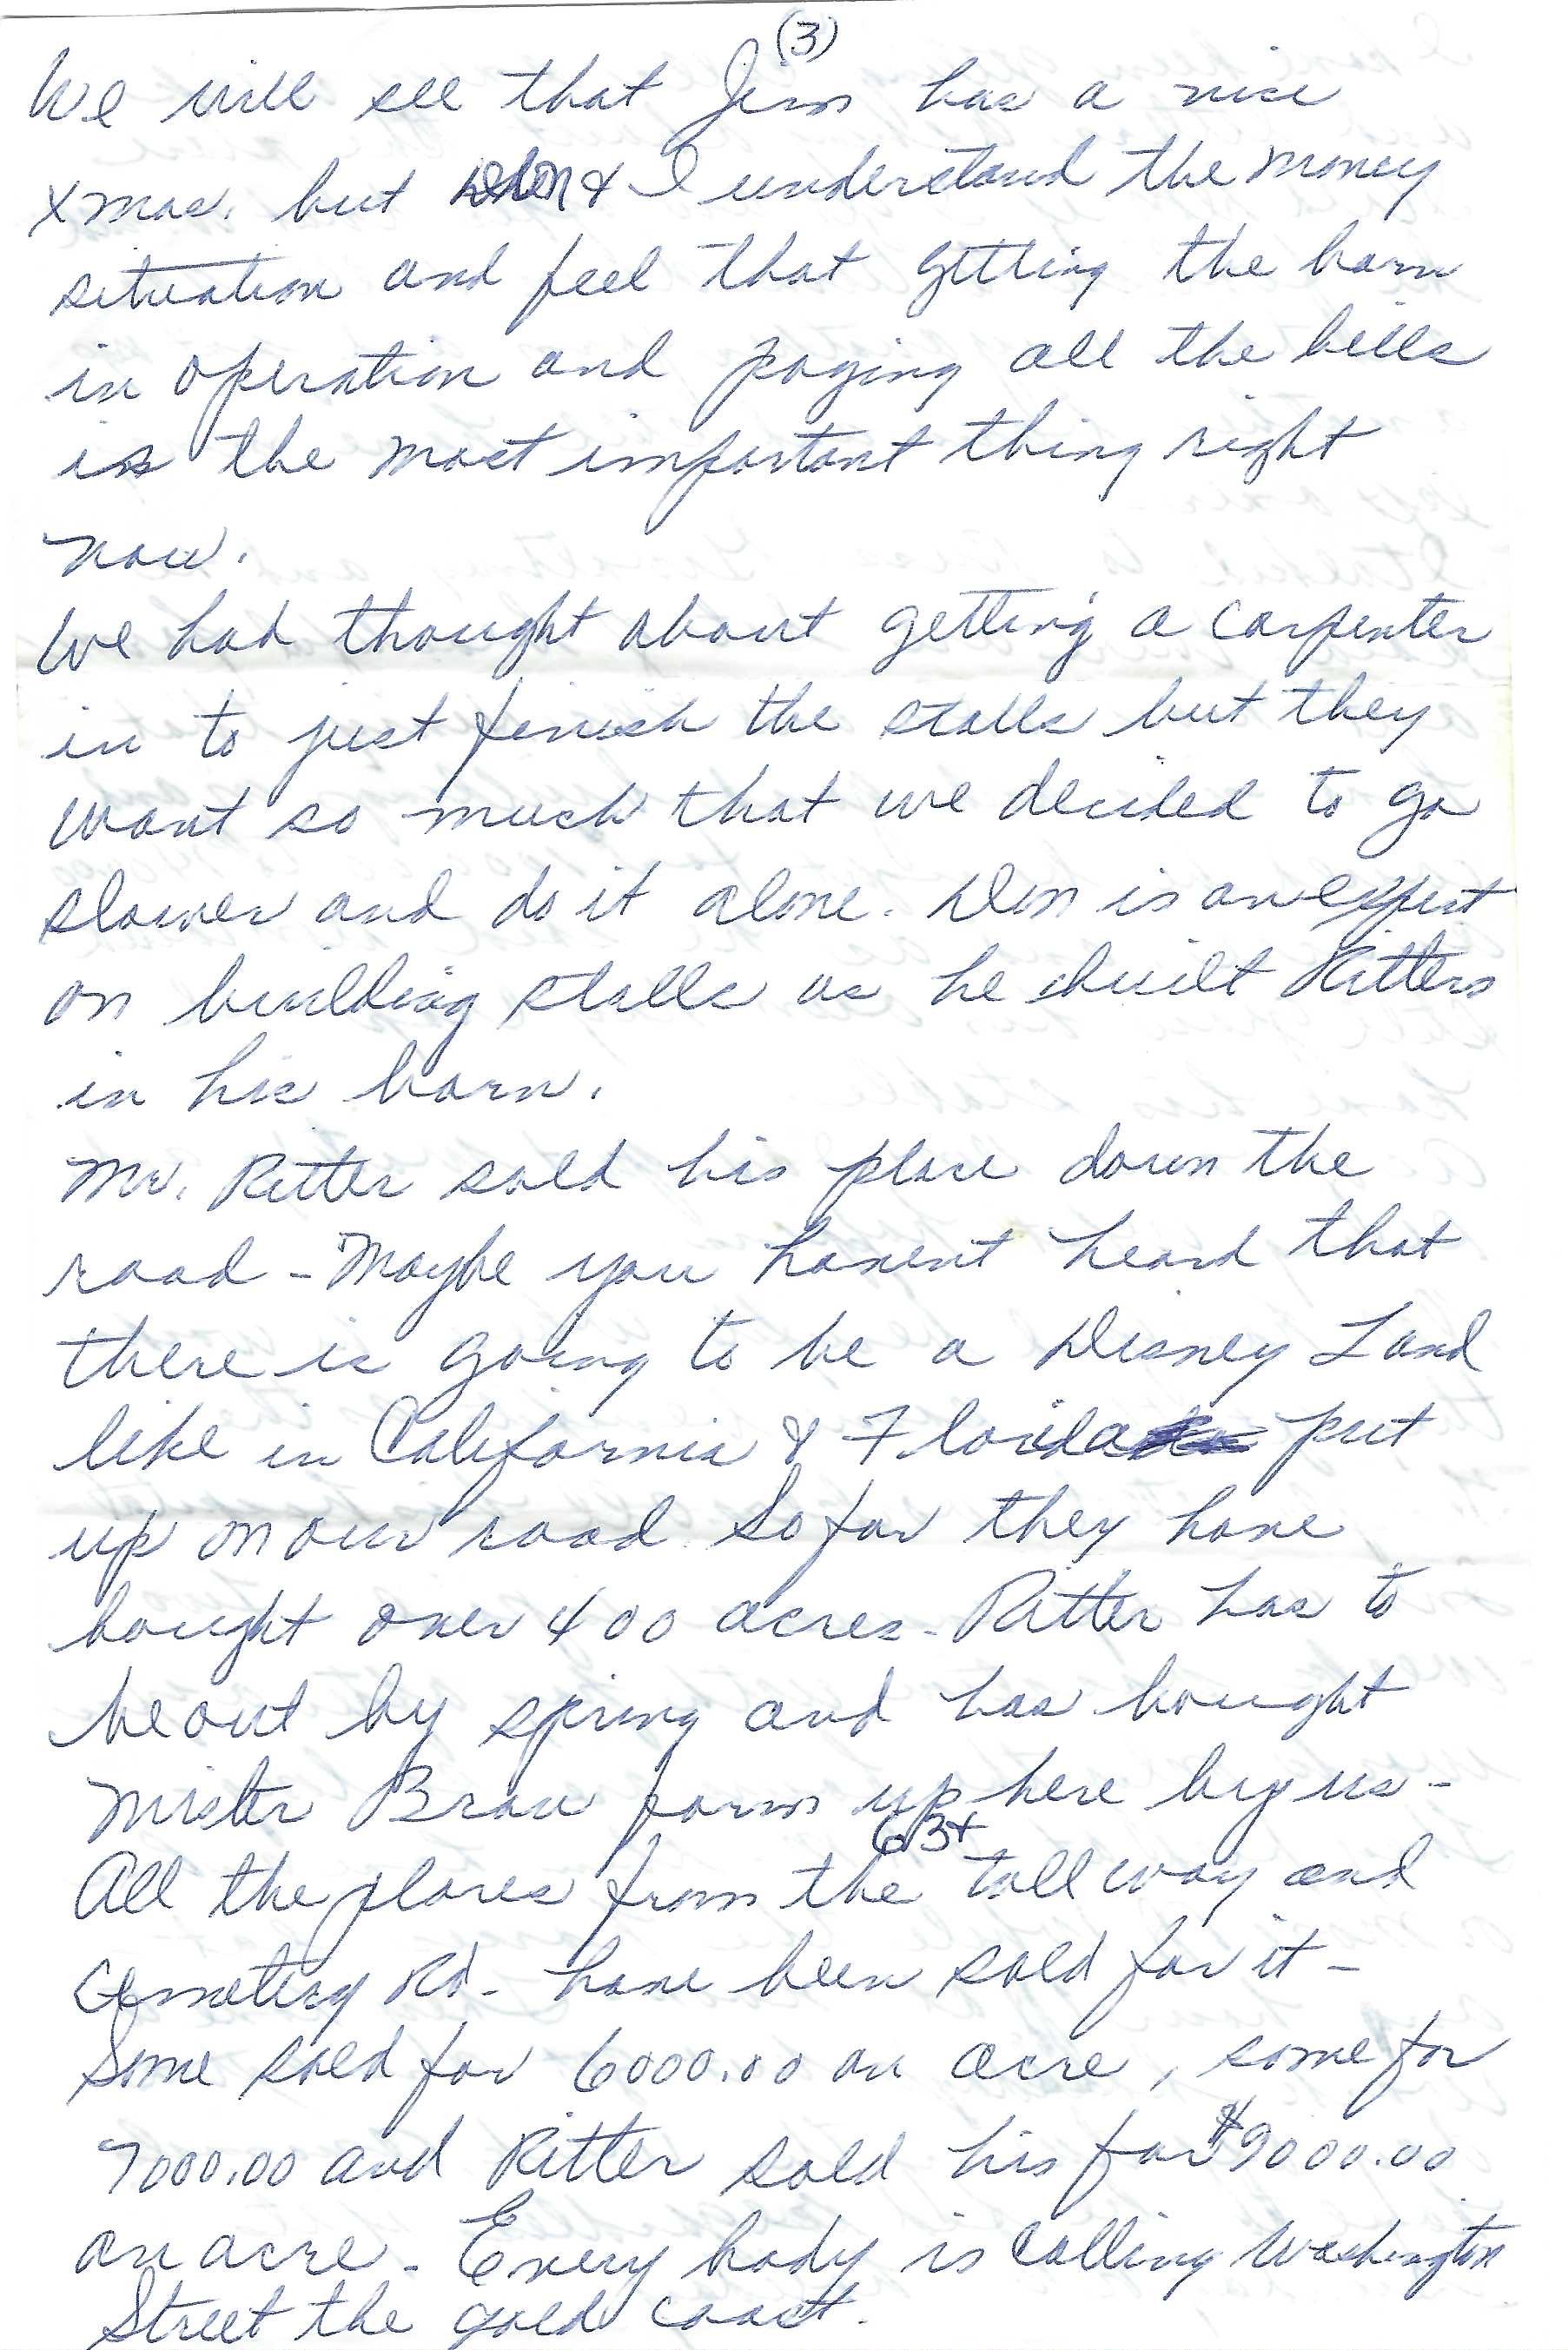 (3)
We will see that Jim has a nice
Xmas. but Don & I understand the money
situation and feel that getting the barn
in operation and paying all the bills
is the most important thing right
now.
We had thought about getting a carpenter
in to just finish the stalls but they
want so much that we decided to go
slower and do it alone. Don is an expert
on building stalls as he built Ritters
in his barn.
Mr. Ritter sold his place down the
road - Maybe you havent heard that
there is going to be a Disney Land
like in California & Florida put
up on our road. So far they have
bought over 400 acres. Ritter has to
be out by spring and has bought
Mister Brau farm up here by us -
63+
All the places from the tall way and
Cemetery Rd. have been sold for it -
Some sold for 6000.00 an acre, some for
7000.00 and Ritter sold his for $9000.00
an acre. Every body is calling Washington
Street the gold coast.